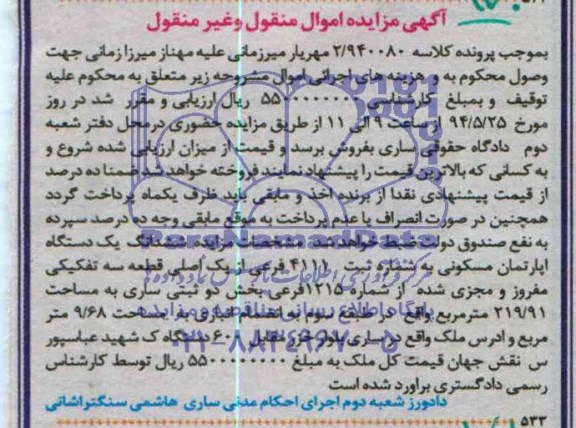 آگهی مزایده اموال منقول وغیر منقول
بموجب پرونده کلاسه ۲/۹۴۰۰۸۰ مهریار میرزمانی علیه مهناز میرزا زمانی جهت
وصول محکوم به و هزینه های اجرائی اموال مشروحه زیر متعلق به محکوم علیه
توقیف و بمبلغ کارشناسی ۵۵۰۰۰۰۰۰۰۰ ریال ارزیابی و مقرر شد در روز
مورخ ۹۴/۵/۲۵ از ساعت ۹ الی ۱۱ از طریق مزایده حضوری درمحل دفتر شعبه
دوم دادگاه حقوقی ساری بفروش برسد و قیمت از میزان ارزیابی شده شروع و
به کسانی که بالاترین قیمت را پیشنهاد نمایند فروخته خواهد شد ضمنا ده درصد
از قیمت پیشنهادی نقدا از برنده اخذ و مابقی باید ظرف یکماه پرداخت گردد
همچنین در صورت انصراف یا عدم پرداخت به موقع مابقی وجه ده درصد سپرده
به نفع صندوق دولت ضبط خواهد شد مشخصات مزایده ششدانگ یک دستگاه
اپارتمان مسکونی به شماره ثبتی ۴۱۱۱ فرعی از یک اصلی قطعه سه تفکیکی
مفروز و مجزی شده از شماره ۱۲۱۵فرعی بخش دو ثبتی ساری به مساحت
۲۱۹/۹۱ مترمربع واقع در طبقه سوم به انضمام انباری به مساحت ۹/۶۸ متر
مربع و ادرس ملک واقع در ساری بلوار خزر مقابل ۶۰۰ دستگاه ک شهید عباسپور
س نقش جهان قیمت کل ملک به مبلغ ۵۵۰۰۰۰۰۰۰۰ ریال توسط کارشناس
رسمی دادگستری براورد شده است
دادورز شعبه دوم اجرای احکام مدنی ساری هاشمی سنگتراشانی
۵۳۳
ParsNamadData
پایگاه اطلاع رسانی مناقصه و مزایده
۰۲۱-۸۸۳۴۹۶۷۰-۵